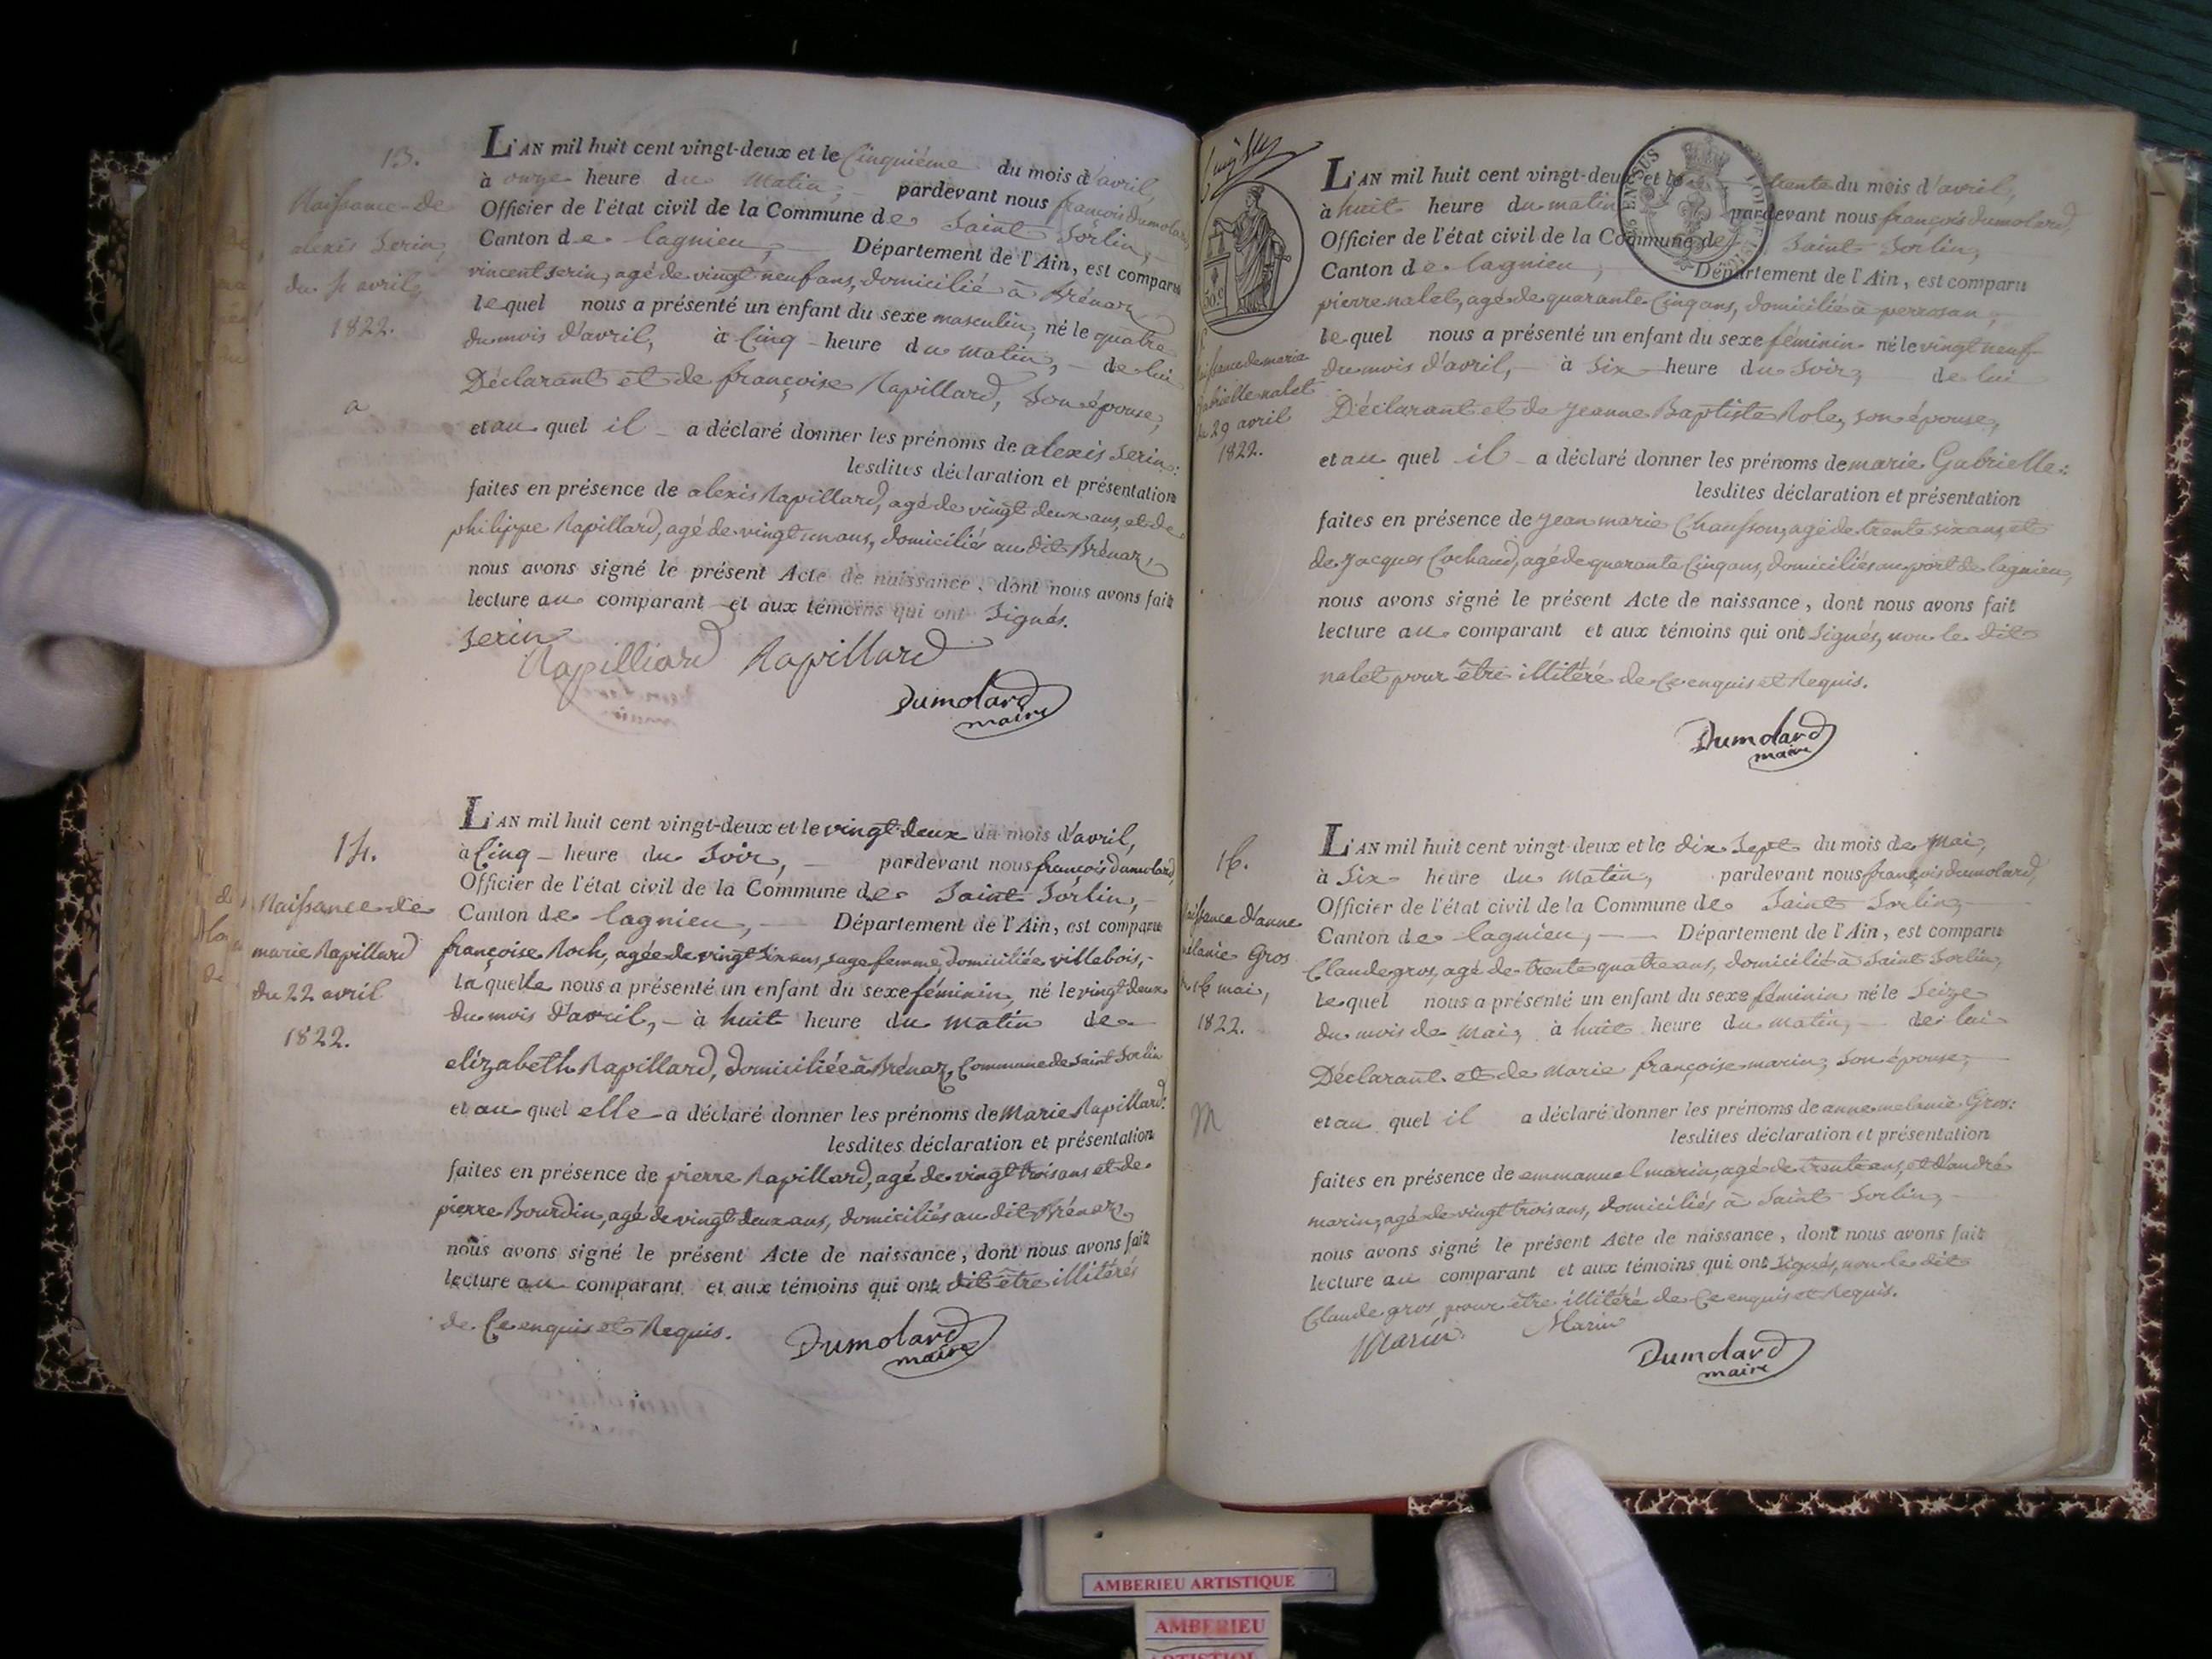 13.
Naissance de
alexis Serin,
du 4 avril,
1822.
L'AN mil huit cent vingt-deux et le Cinquième du mois d'avril,
à onze heure du matin, pardevant nous françois dumolard,
Officier de l'état civil de la Commune de Saint Sorlin,
Canton de lagnieu, Département de l'Ain, est comparu
vincent serin, agé de vingt neuf ans, domicilié à Brénaz,
lequel nous a présenté un enfant du sexe masculin, né le quatre
du mois d'avril, à Cinq heure du matin, de lui
Déclarant et de françoise Rapillard, Son épouse,
et au quel il a déclaré donner les prénoms de alexis Serin:
lesdites déclaration et présentation
faites en présence de alexis Rapillard, agé de vingt deux ans, et de
philippe Rapillard, agé de vingt un ans, domiciliés au dit Brénaz,
nous avons signé le présent Acte de naissance, dont nous avons fait
lecture au comparant et aux témoins qui ont Signés.
Serin
Rapilliard Rapillard
Dumolard
maire
14.
Naissance de
marie Rapillard
du 22 avril
1822.
L'AN mil huit cent vingt-deux et le vingt deux du mois d'avril,
à Cinq heure du Soir, pardevant nous françois dumolard,
Officier de l'état civil de la Commune de Saint Sorlin,
Canton de lagnieu, Département de l'Ain, est comparu
françoise Roch, agée de vingt six ans, sage femme, domiciliée villebois,
laquelle nous a présenté un enfant du sexe féminin, né le vingt deux
du mois d'avril, à huit heure du matin de
elizabeth Rapillard, domiciliée à Brénaz, Commune de Saint Sorlin
et au quel elle a déclaré donner les prénoms de Marie Rapillard:
lesdites déclaration et présentation
faites en présence de pierre Rapillard, agé de vingt trois ans et de
pierre Bourdin, agé de vingt deux ans, domiciliés au dit Brénaz,
nous avons signé le présent Acte de naissance, dont nous avons fait
lecture au comparant et aux témoins qui ont dit être illitérés
de Ce enquis et Requis.
Dumolard
maire
naissance de marie
Gabrielle nalet
du 29 avril
1822.
L'AN mil huit cent vingt-deux et le trente du mois d'avril,
à huit heure du matin pardevant nous françois dumolard,
Officier de l'état civil de la Commune de Saint Sorlin,
Canton de lagnieu, Département de l'Ain, est comparu
pierre nalet, agé de quarante Cinq ans, domicilié à perrosan,
lequel nous a présenté un enfant du sexe féminin né le vingt neuf
du mois d'avril, à Six heure du Soir, de lui
Déclarant et de jeanne Baptiste Role, son épouse,
et au quel il a déclaré donner les prénoms de marie Gabrielle:
lesdites déclaration et présentation
faites en présence de jean marie Chausson, agé de trente six ans, et
de jacques Cochaud, agé de quarante Cinq ans, domiciliés au port de lagnieu,
nous avons signé le présent Acte de naissance, dont nous avons fait
lecture au comparant et aux témoins qui ont Signés, non le dit
nalet pour être illitéré de Ce enquis et Requis.
Dumolard
maire
16.
naissance d'anne
mélanie Gros
du 16 mai,
1822.
M
L'AN mil huit cent vingt-deux et le dix Sept du mois de Mai,
à Six heure du Matin, pardevant nous françois dumolard,
Officier de l'état civil de la Commune de Saint Sorlin,
Canton de lagnieu, Département de l'Ain, est comparu
Claude gros, agé de trente quatre ans, domicilié à Saint Sorlin,
lequel nous a présenté un enfant du sexe féminin né le Seize
du mois de Mai, à huit heure du matin, de lui
Déclarant et de Marie françoise marin, Son épouse,
et au quel il a déclaré donner les prénoms de anne melanie Gros:
lesdites déclaration et présentation
faites en présence de emmanuel marin, agé de trente ans, et d'andré
marin, agé de vingt trois ans, domiciliés à Saint Sorlin,
nous avons signé le présent Acte de naissance, dont nous avons fait
lecture au comparant et aux témoins qui ont Signés, non le dit
Claude gros pour être illitéré de Ce enquis et Requis.
Marin Marin
Dumolard
maire
AMBERIEU ARTISTIQUE
AMBERIEU
ARTISTIQUE